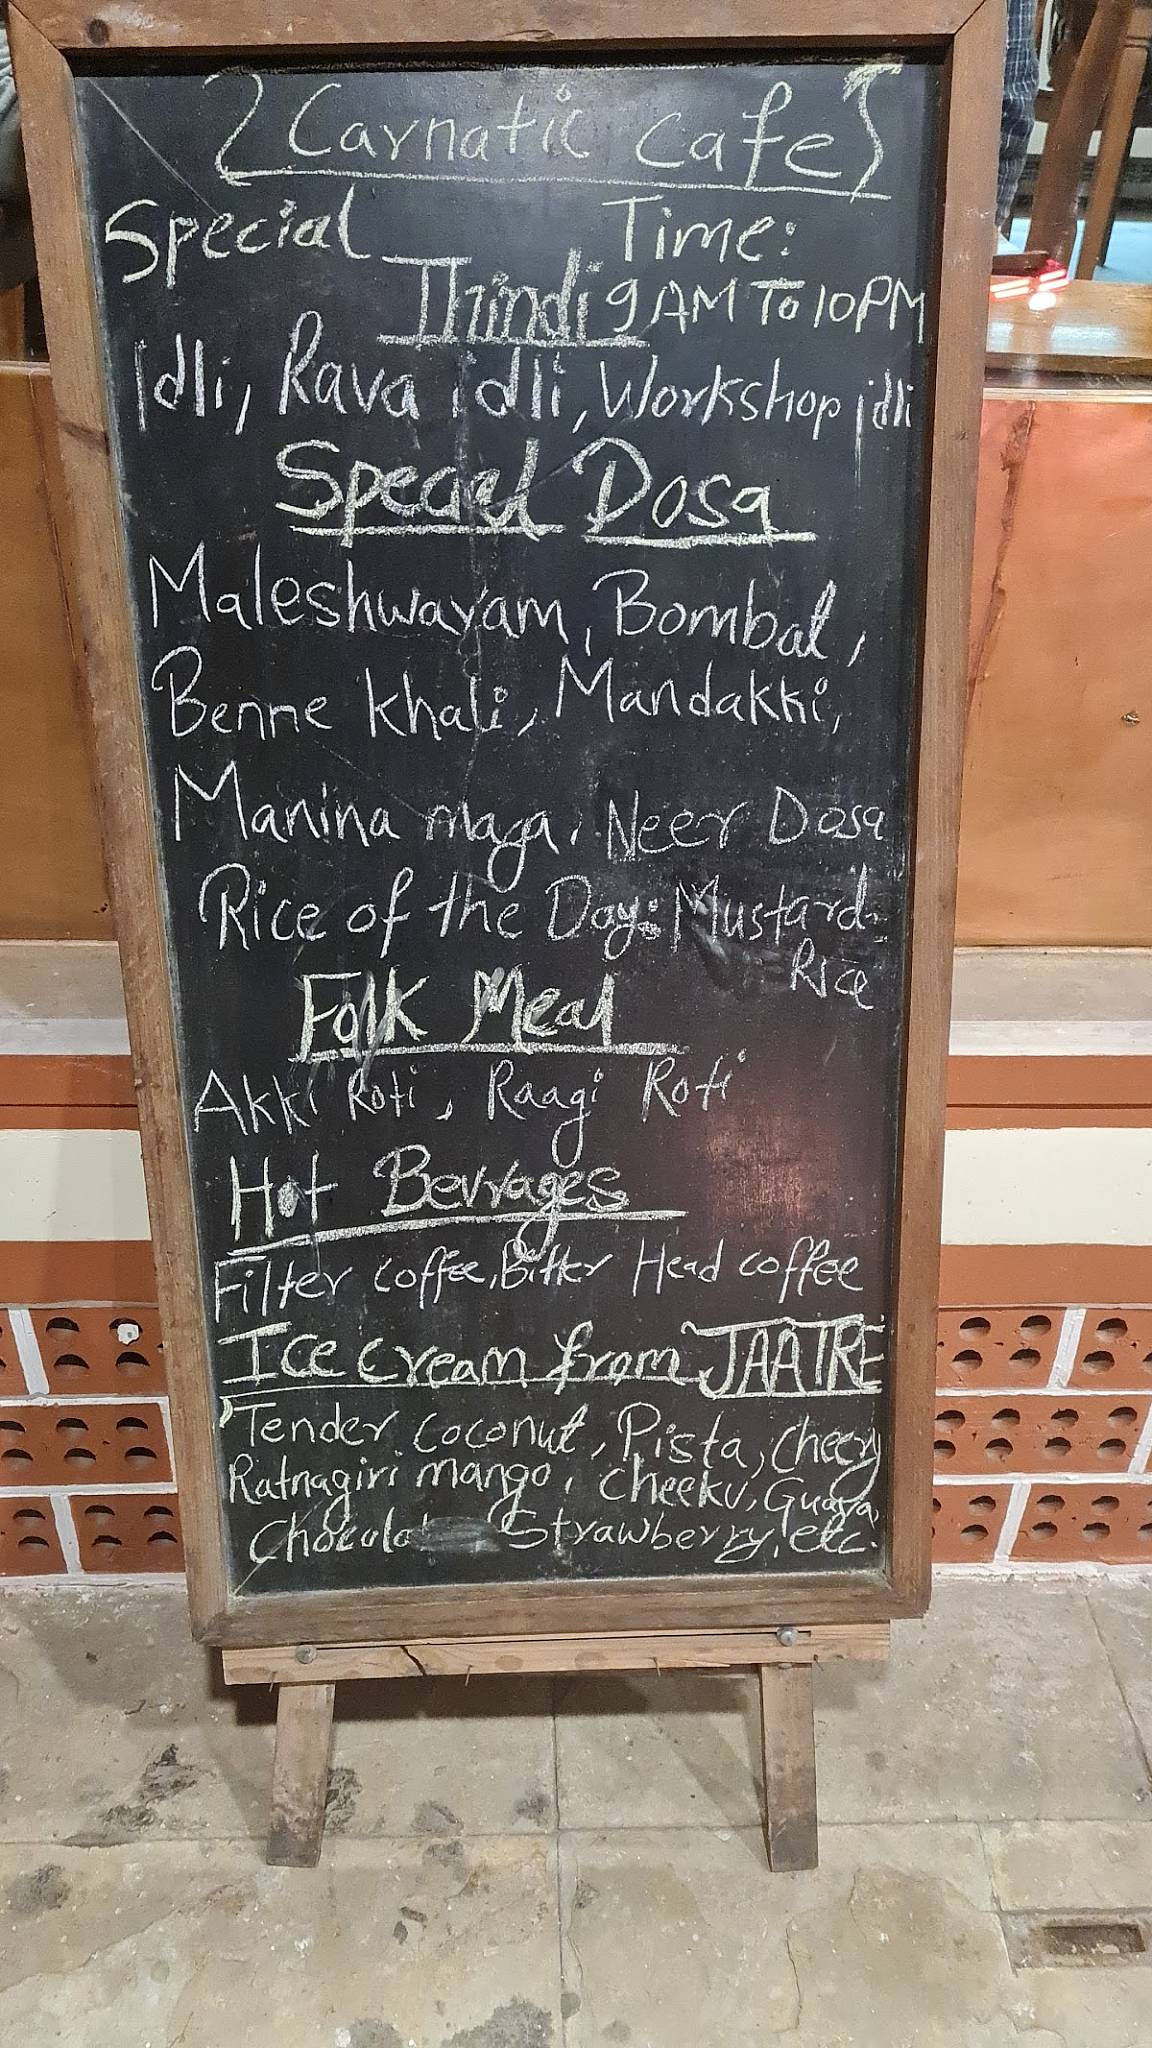 Carnatic Cafe
Special Time:
Thindi 9 AM To 10PM
Idli, Rava idli, Workshop idli
Special Dosa
Maleshwaram, Bombat,
Benne khali, Mandakki,
Manina maga, Neer Dosa
Rice of the Day: Mustard
Rice
Folk Meal
Akki Roti, Raagi Roti
Hot Bevrages
Filter coffee, Bitter Head coffee
Ice cream from JAATRE
Tender coconut, Pista, cheery
Ratnagiri mango, cheeku, Guava,
Strawberry, etc.